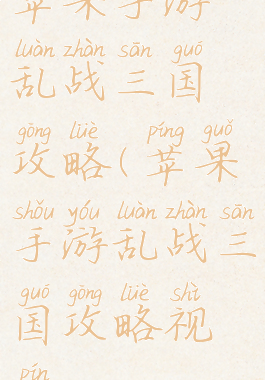 苹果手游
luàn zhàn sān guó
乱战三国
gōng lüè píng guǒ
攻略(苹果
shǒu yóu luàn zhàn sān
手游乱战三
guó gōng lüè shì
国攻略视
pín